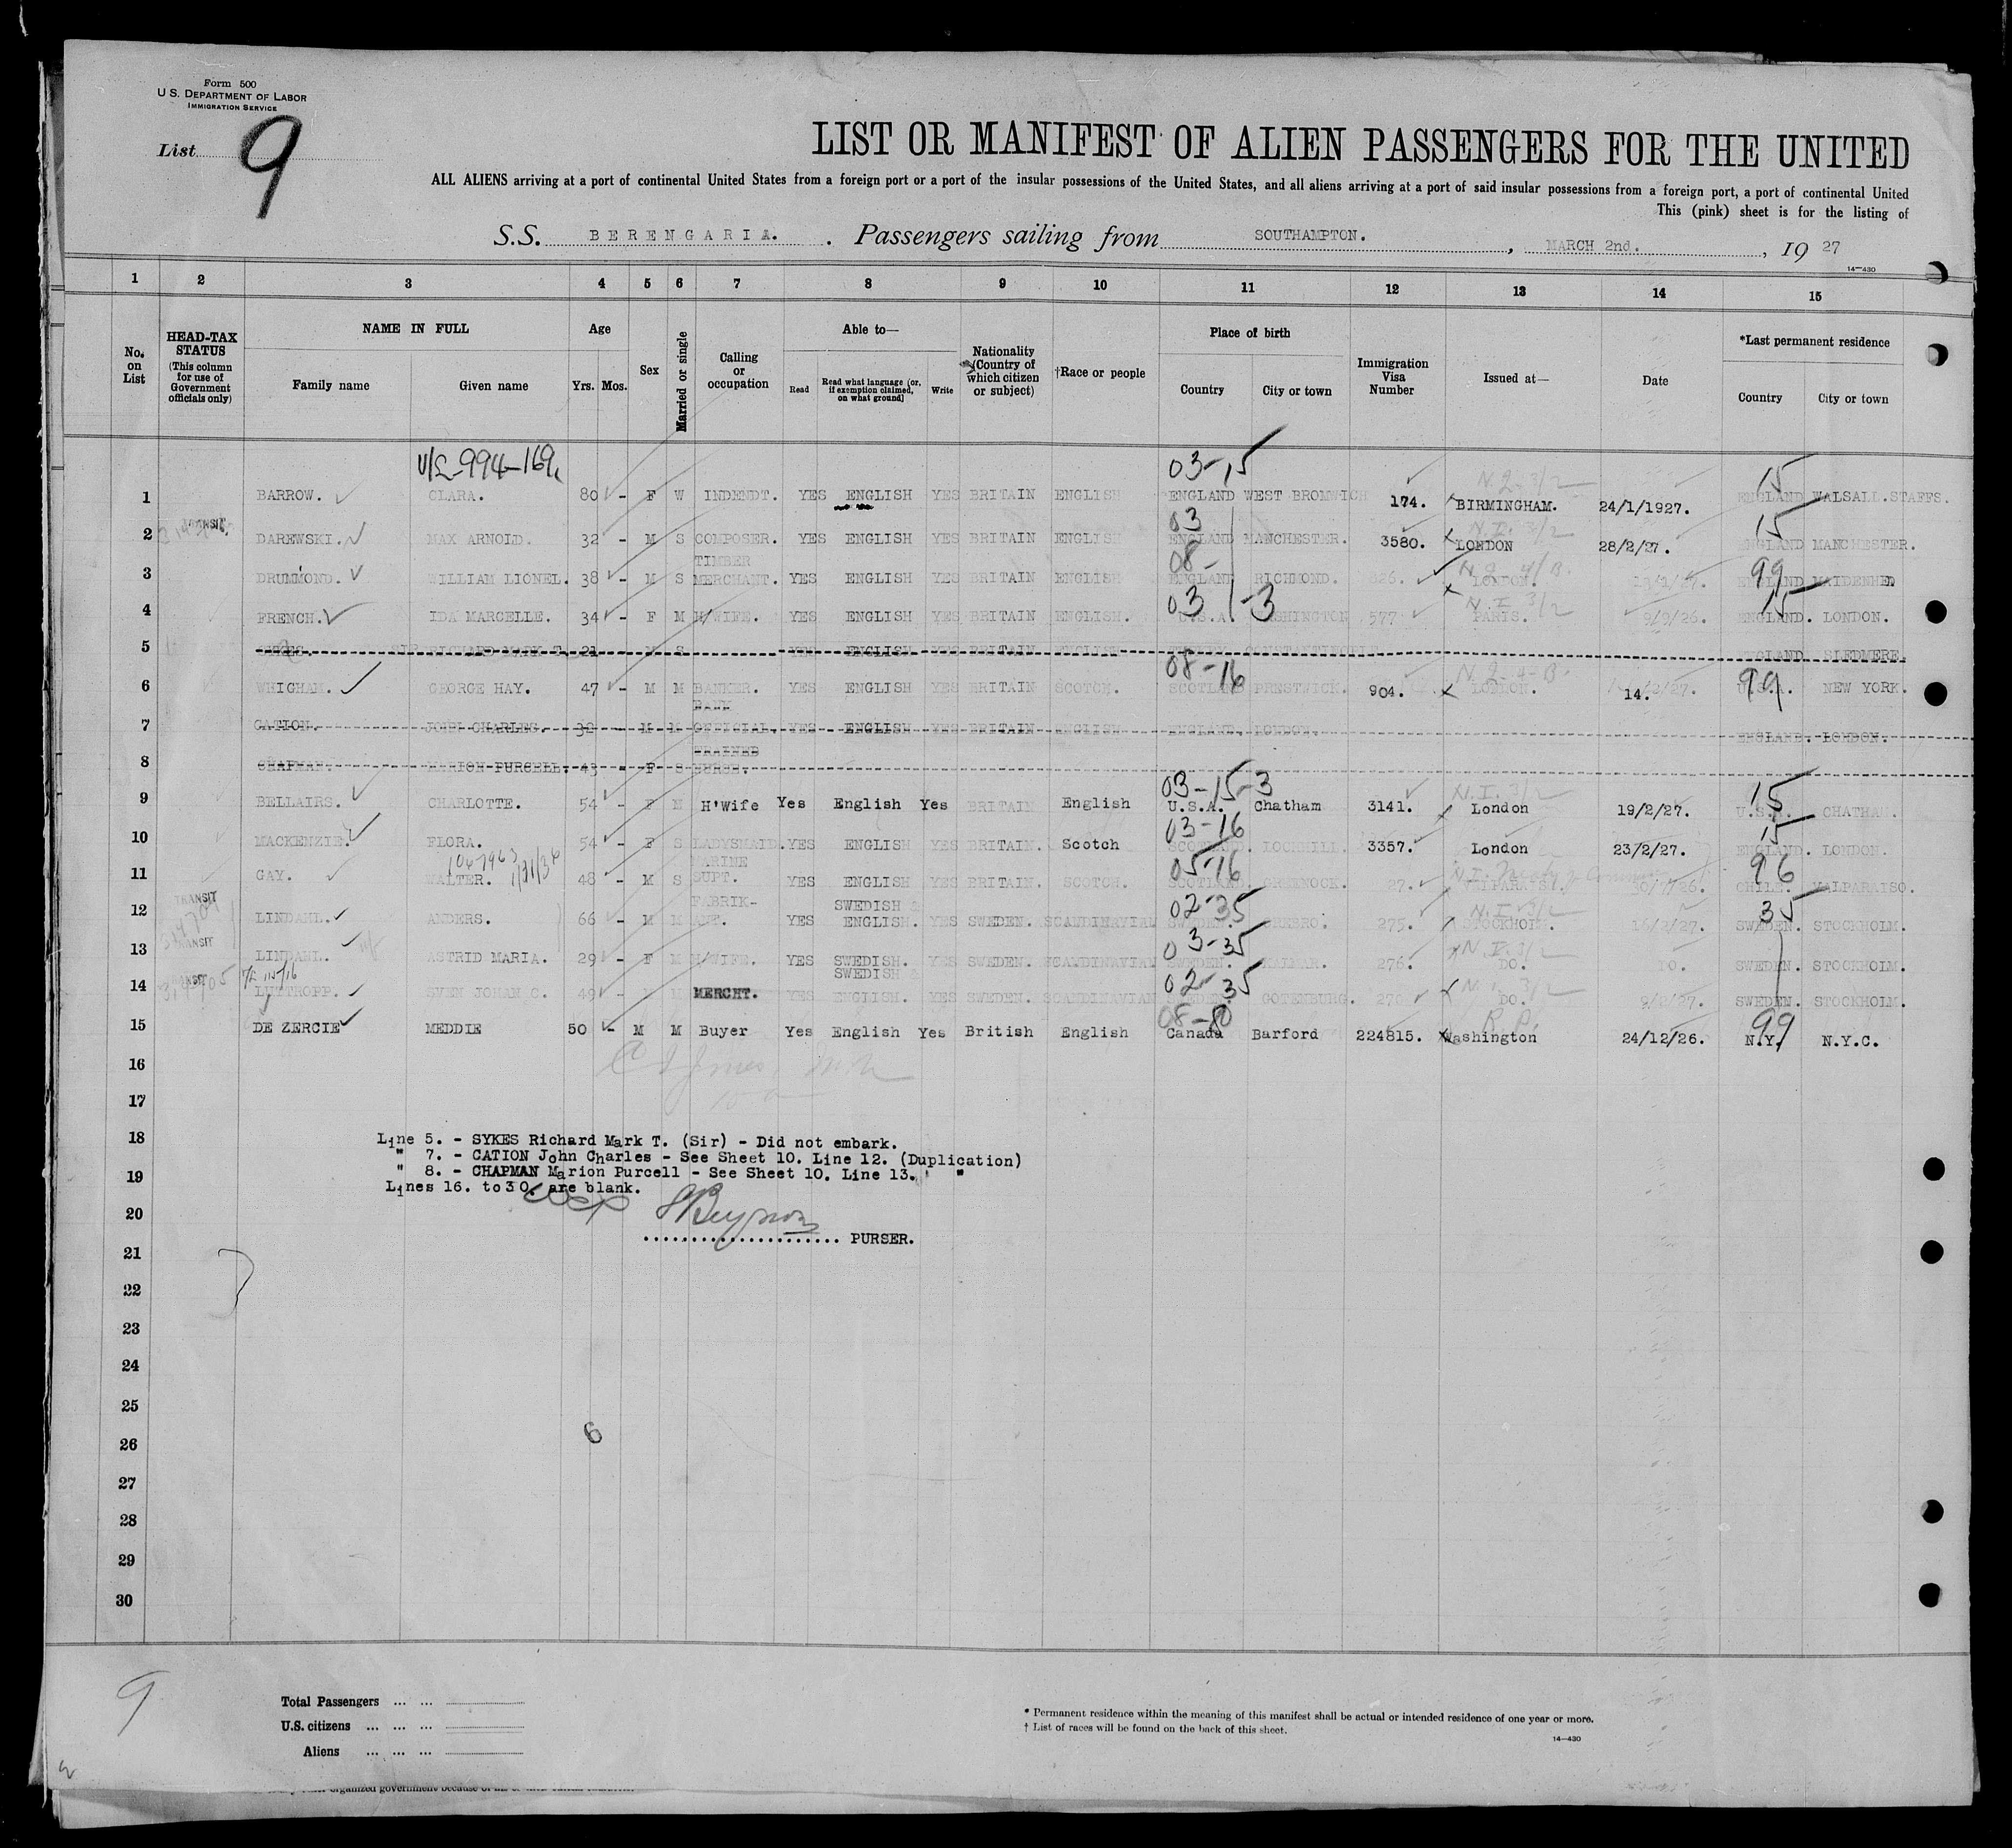 Form 500
U.S. DEPARTMENT OF LABOR
IMMIGRATION SERVICE
List 9
LIST OR MANIFEST OF ALIEN PASSENGERS FOR THE UNITED
ALL ALIENS arriving at a port of continental United States from a foreign port or a port of the insular possessions of the United States, and all aliens arriving at a port of said insular possessions from a foreign port, a port of continental United
This (pink) sheet is for the listing of
S.S. BERENGARIA. Passengers sailing from SOUTHAMPTON., MARCH 2nd., 19 27
14—430
1 2 3 4 5 6 7 8 9 10 11 12 13 14 15
No. on List
HEAD-TAX STATUS (This column for use of Government officials only)
NAME IN FULL Family name Given name
Age Yrs. Mos.
Sex
Married or single
Calling or occupation
Able to— Read Read what language (or, if exemption claimed, on what ground) Write
Nationality (Country of which citizen or subject)
†Race or people
Place of birth Country City or town
Immigration Visa Number
Issued at—
Date
*Last permanent residence Country City or town
03-15 15
1 BARROW. CLARA. 80 - F W INDENDT. YES ENGLISH YES BRITAIN ENGLISH ENGLAND WEST BROMWICH 174. BIRMINGHAM. 24/1/1927. ENGLAND WALSALL.STAFFS.
TRANSIT 03 N.I. 3/2 15
2 DAREWSKI. MAX ARNOLD. 32 - M S COMPOSER. YES ENGLISH YES BRITAIN ENGLISH ENGLAND MANCHESTER. 3580. LONDON 28/2/27. ENGLAND MANCHESTER.
TIMBER 08- 99
3 DRUMMOND. WILLIAM LIONEL. 38 - M S MERCHANT. YES ENGLISH YES BRITAIN ENGLISH ENGLAND RICHMOND. LONDON. ENGLAND MAIDENHED
03 -3 N.I. 3/2 15
4 FRENCH. IDA MARCELLE. 34 - F M H/WIFE. YES ENGLISH YES BRITAIN ENGLISH. U.S.A. WASHINGTON 577. PARIS. 9/9/26. ENGLAND. LONDON.
5 SYKES. SIR RICHARD MARK T. 21 M S YES ENGLISH YES BRITAIN ENGLISH CONSTANTINOPLE ENGLAND SLEDMERE.
08-16 99
6 WHIGHAM. GEORGE HAY. 47 - M M BANKER. YES ENGLISH YES BRITAIN SCOTCH. SCOTLAND PRESTWICK. 904. LONDON. 14. /2/27. U.S.A. NEW YORK.
BANK
7 CATION. JOHN CHARLES. 38 - M M OFFICIAL. YES ENGLISH YES BRITAIN ENGLISH ENGLAND. LONDON. ENGLAND. LONDON.
TRAINED
8 CHAPMAN. MARION PURCELL. 43 - F S NURSE.
03-15-3 N.I. 3/2 15
9 BELLAIRS. CHARLOTTE. 54 - F M H'Wife Yes English Yes BRITAIN English U.S.A. Chatham 3141. London 19/2/27. U.S.A. CHATHAM.
03-16 15
10 MACKENZIE. FLORA. 54 - F S LADYSMAID. YES ENGLISH YES BRITAIN. Scotch SCOTLAND. LOCHHILL. 3357. London 23/2/27. ENGLAND. LONDON.
MARINE 05-16 96
11 GAY. WALTER. 48 - M S SUPT. YES ENGLISH YES BRITAIN. SCOTCH. SCOTLAND. GREENOCK. 27. VALPARAISO. CHILE. VALPARAISO.
TRANSIT FABRIK- SWEDISH & 02-35 N.I. 3/2 35
12 LINDAHL. ANDERS. 66 - M M YES ENGLISH. YES SWEDEN. SCANDINAVIAN SWEDEN. OREBRO. 275. STOCKHOLM. 16/2/27. SWEDEN. STOCKHOLM.
TRANSIT 03-35 N.I. 3/2
13 LINDAHL. ASTRID MARIA. 29 - F M H/WIFE. YES SWEDISH. YES SWEDEN. SCANDINAVIAN SWEDEN. KALMAR. 276. DO. DO. SWEDEN. STOCKHOLM.
SWEDISH 02-35
14 LUTTROPP. SVEN JOHAN C. 49 - M M MERCHT. YES ENGLISH. YES SWEDEN. SCANDINAVIAN SWEDEN. GOTENBURG. 270 DO. 9/2/27. SWEDEN. STOCKHOLM.
08-80 R.P. 99
15 DE ZERCIE MEDDIE 50 - M M Buyer Yes English Yes British English Canada Barford 224815. Washington 24/12/26. N.Y. N.Y.C.
16
17
18
19
Line 5. - SYKES Richard Mark T. (Sir) - Did not embark.
" 7. - CATION John Charles - See Sheet 10. Line 12. (Duplication)
" 8. - CHAPMAN Marion Purcell - See Sheet 10. Line 13. "
Lines 16. to 30. are blank.
20
PURSER.
21
22
23
24
25
6
26
27
28
29
30
9
Total Passengers
U.S. citizens
Aliens
* Permanent residence within the meaning of this manifest shall be actual or intended residence of one year or more.
† List of races will be found on the back of this sheet.
14—430